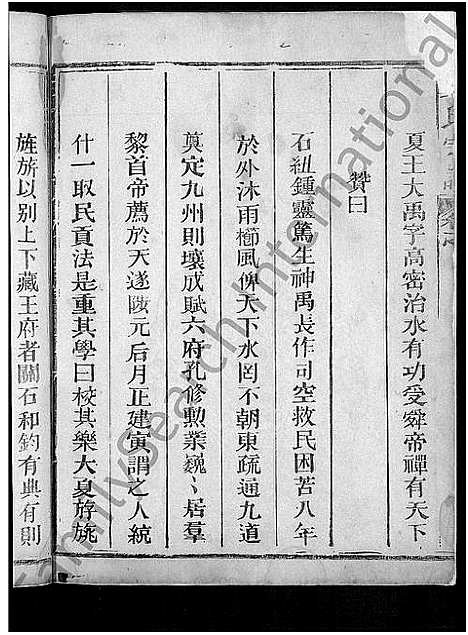 夏王大禹字高密治水有功受舜帝禪有天下
贊曰
石紐鍾靈篤生神禹長作司空救民困苦八年
於外沐雨櫛風俾天下水罔不朝東疏通九道
奠定九州則壤成賦六府孔修勲業巍〻居羣
黎首帝薦於天遂陟元后月正建寅謂之人統
什一取民貢法是重其學曰校其樂大夏斿旐
旌旂以别上下藏王府者關石和鈞有典有則
Familysearch International